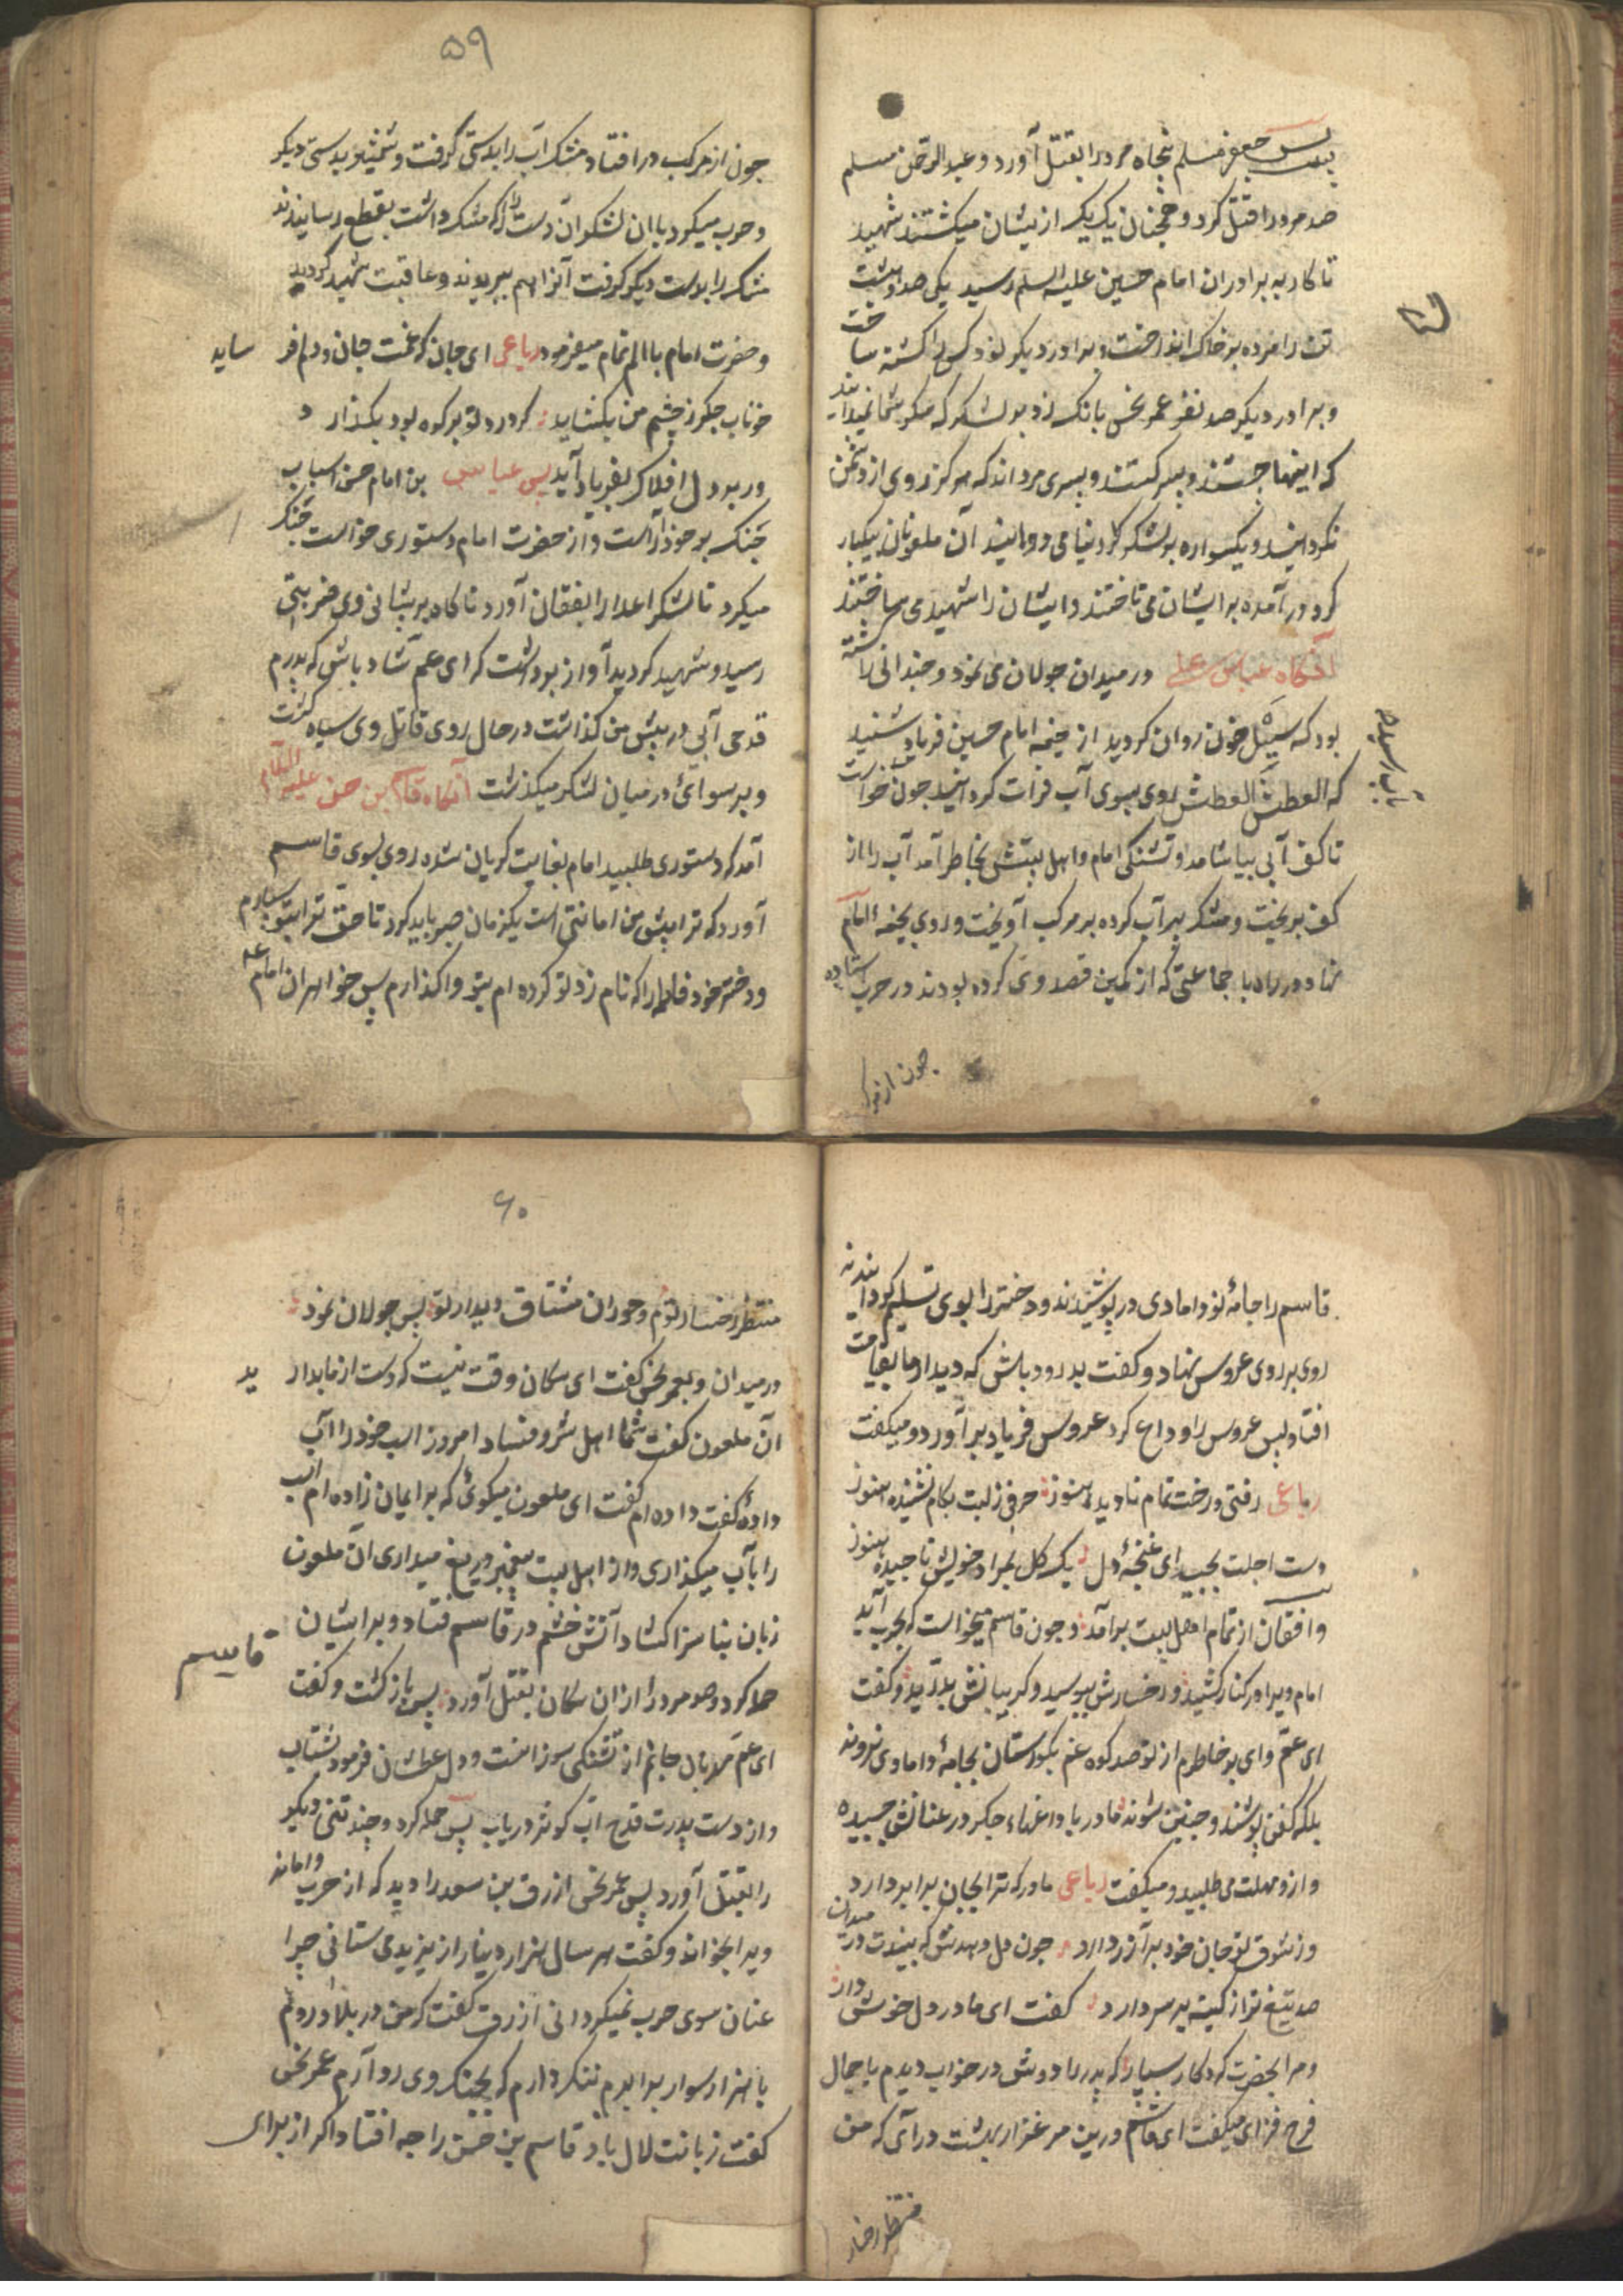 پس جعفر مسلم پنجاه مرد را بقتل آورد و عبدالرحمن مسلم
صد مرد را قتل کرد و همچنان یک یک از یشان میکشتند شهید
تا کار به برادران امام حسین علیه السلم رسید یکی صد و بیست
تن را مزده بر خاک انداخت و برادر دیگر نود کس را کشته ساخت
و برادر دیگر صد نفر عمر نحس بانک زد بر لشکر که مگر شما نمیدانید
که اینها جستند و پسر کیستند و پسری مردانند که هرگز روی از دشمن
نگردانیدند و یکسواره بر لشکر کل دنیا می دوانیند آن ملعونان بیکبار
کرد در آمده بر ایشان می تاختند و ایشان را شهید می ساختند
آنگاه عباس علی در میدان جولان می نمود و چندانی را کشته
بود که سیل خون روان گردید از خیمه امام حسین فریاد شنید
که العطش العطش روی بسوی آب فرات کردانید چون خواست
تا کف آبی بیاشامد و تشنکی امام و اهل بیتش بخاطر آمد آب را از
کف بریخت و مشک پر آب کرده بر مرکب آویخت و روی بخیمهٔ امام
نهاد در راه با جماعتی که از کمین قصد وی کرده بودند در حرب ستاده
چون از مرکب
۵۹
چون از مرکب در افتاد مشک آب را بدستی گرفت و شمشیر بدستی دیگر
و حرب میکرد با ان لشکر ان دست را که مشک داشت بقطع رسانیدند
مشک را بدست دیگر گرفت آنرا هم ببریدند و عاقبت شهید گردید
و حضرت امام با الم تمام میفرمود رباعی ای جان که غمت جان و دلم فر ساید
خوناب جگر ز چشم من بکشاید کر درد تو بر کوه بود بکدازد
ور بر دل افلاک بفریاد آید پس عباس بن امام حسن اسباب
جنک بر خود آراست و از حضرت امام دستوری خواست جنک
میکرد تا لشکر اعدا را بفغان آورد ناکاه بر پیشانی وی ضربتی
رسید و شهید کردید آواز برداشت که ای عم شاد باش که پدرم
قدحی آبی در پیش من گذاشت در حال روی قاتل وی سیاه گشت
و برسوائی در میان لشکر میکذشت آنگاه قاسم بن حسن علیه السلام
آمد که دستوری طلبید امام بغایت کریان شده روی بسوی قاسم
آورد که ترا پیش من امانتی است یکزمان صبر باید کرد تا حق ترا بتو سپارم
و دختر خود فاطمه را که نام زد تو کرده ام بتو واگذارم پس خواهران امام
قاسم را جامهٔ نو دامادی در پوشیدند و دختر را بوی تسلیم کردانیدند
روی بر روی عروس نهاد و کفت بدرود باش که دیدار ما بقیامت
افتاد پس عروس را وداع کرد عروس فریاد بر آورد و میکفت
رباعی رفتی و رخت تمام نادیده هنوز حرفی ز لبت بکام نشنیده هنوز
دست اجلت بچید ای غنچهٔ دل یک کل بمراد خویش ناچیده هنوز
و افغان از تمام اهل بیت برآمد و چون قاسم میخواست که بحرب آید
امام ویرا در کنار کشید و رخسارش ببوسید و کریبانش بدرید و کفت
ای عم وای بر خاطرم از تو صد کوه غم بکورستان بجامهٔ دامادی نروند
بلکه کفن پوشند و چنین شوند مادر با داغهاء جکر در عنانش چسپیده
و از و مهلت می طلبید و میکفت رباعی مادر که ترا بجان برابر دارد
وز شوق تو جان خود بر آذر دارد چون دل دهدش که بیندت در میدان
صد تیغ تر از کینه بر سر دارد کفت ای مادر دل خوش دار
و مرا بحضرت کردکار سپار که پدر را دوش در خواب دیدم با جمال
فرح فزای میکفت ای قاسم درین مرغزار بهشت در آی که من
منتظر رخسار
۶۰
منتظر رخسار توام و حوران مشتاق دیدار تو پس جولان نمود
در میدان و بعمر نحس کفت ای سکان وقت نیست که دست از ما بدار ید
آن ملعون کفت شما اهل شر و فساد امروز اسب خود را آب
دادهٔ کفت داده ام کفت ای ملعون میکوئی که بر ایمان زاده ام اسب
را بآب میکذاری و از اهل بیت پیغمبر دریغ میداری آن ملعون
زبان بناسزا کشاد آتش خشم در قاسم فتاد و بر ایشان
قاسم
حمله کرد و صد مرد را از ان سکان بقتل آورد پس باز کشت و کفت
ای عم مهربان جانم از تشنکی سوزانست و دل عطشان فرمود بشتاب
و از دست پدرت قدح آب کوثر دریاب پس حمله کرد و چند تنی دیکر
را بقتل آورد پس عمر نحس ازرق بن سعد را دید که از حرب وامانده
ویرا بخواند و کفت هر سال هزار دینار از یزید می ستانی چرا
عنان سوی حرب نمیکردانی ازرق کفت که من در بلاد روم
با هزار سوار برابرم ننک دارم که بجنک وی رو آرم عمر نحس
کفت زبانت لال باد قاسم بن حسن را چه افتاد اکر از برای